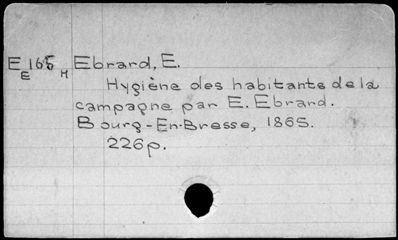 E165 Ebrard, E.
E H
Hygiène des habitants de la
campagne par E. Ebrard.
Bourg-En-Bresse, 1865.
226p.